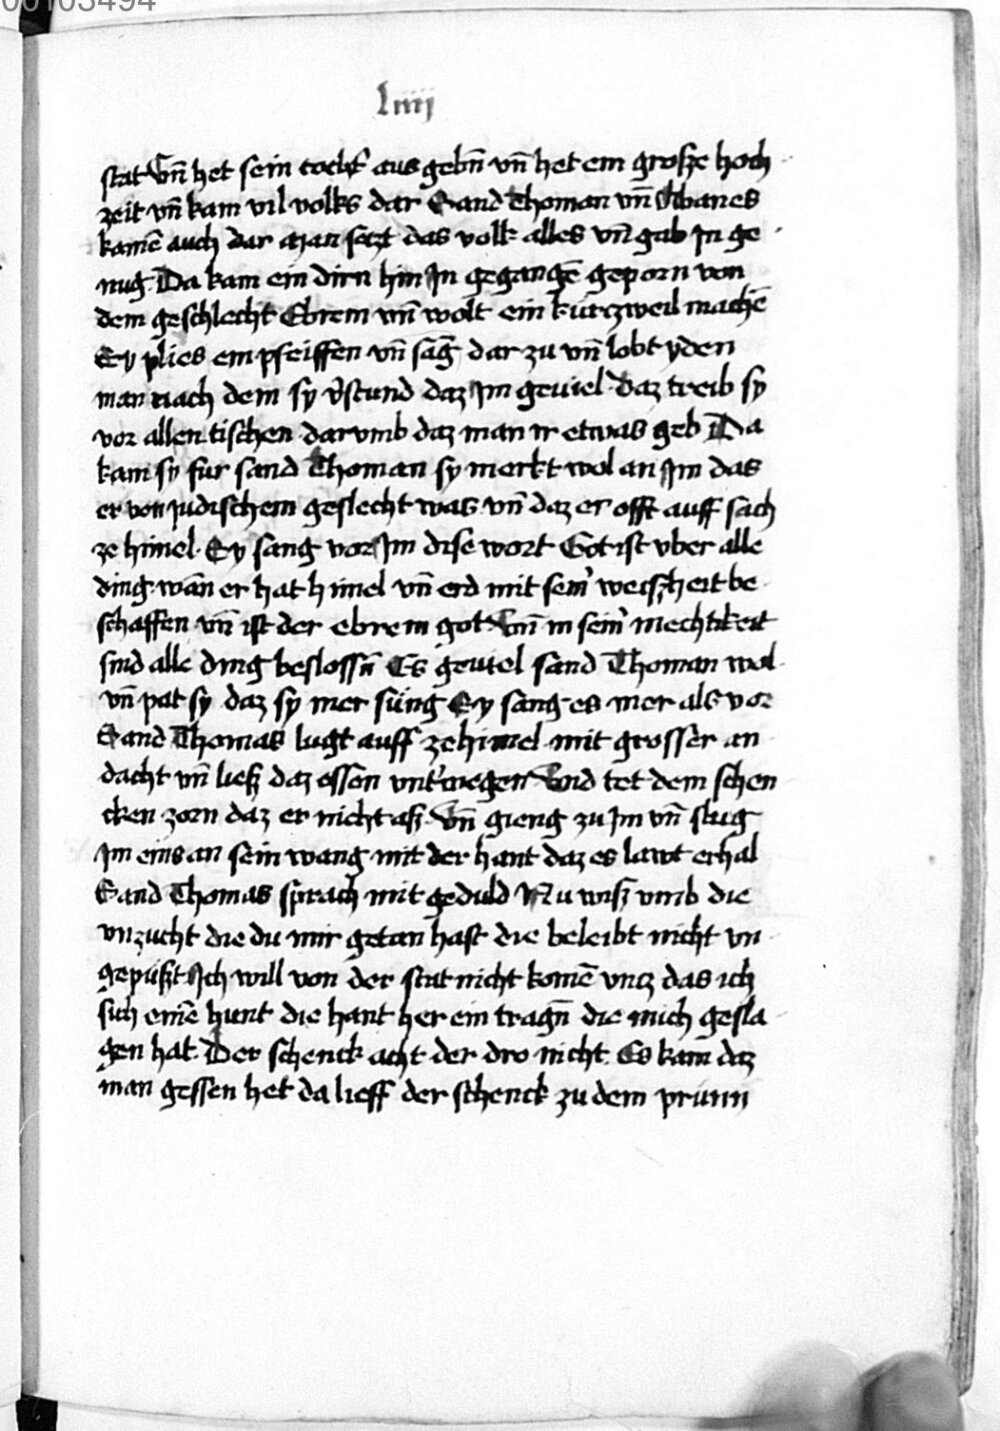 00103494
Liiij
stat Vn̄ het sein tocht͛ aus gebn̄ vn̄ het ein grosze hoch
zeit vn̄ kam vil volks dar Sand Thoman vn̄ Abanes
kamē auch dar Man setzt das volk alles vn̄ gab Jn ge
nug. Da kam ein dirn hin Jn gegangē geporn von
dem geschlecht Ebrem vn̄ wolt ein kurczweil machē
Sy plies ein pfeiffen vn̄ sāg dar zu vn̄ lobt yden
man nach dem sy v͛stund daz Jm geuiel daz treib sy
vor allen tischen darvmb daz man ir etwas geb Da
kam sy fur sand Thoman sy merkt wol an Jm das
er von judischem geslecht was vn̄ daz er offt auff sach
ze himel. Sy sang vor Jm dise wort Got ist vber alle
ding wān er hat himel vn̄ erd mit sein͛ weiszheit be
schaffen vn̄ ist der ebrem got Vn̄ in sein͛ mechtikeit
sind alle ding beslossn̄ Es geuiel sand Thoman wol
vn̄ pat sy daz sy mer süng Sy sang es mer als vor
Sand Thomas lugt auff ze himel mit grosser an
dacht vn̄ liesz daz essen vnt͛wegen Vnd tet dem schen
cken zorn daz er nicht asz. Vn̄ gieng zu Jm vn̄ slug
Jm eins an sein wang mit der hant daz es lawt erhal
Sand Thomas sprach mit geduld Nu wisz vmb die
vnzucht die du mir getan hast die beleibt nicht vn
gepüszt Jch will von der stat nicht komē vncz das ich
sich einē hunt die hant her ein tragn̄ die mich gesla
gen hat. Der schenck acht der dro nicht Es kam daz
man gessen het da lieff der schenck zu dem prunn